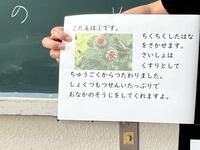 の
こたえは①です。
ちくちくしたはな
をさかせます。
さいしょは
くすりとして
ちゅうごくからつたわりました。
しょくもつせんいたっぷりで
おなかのそうじをしてくれますよ。